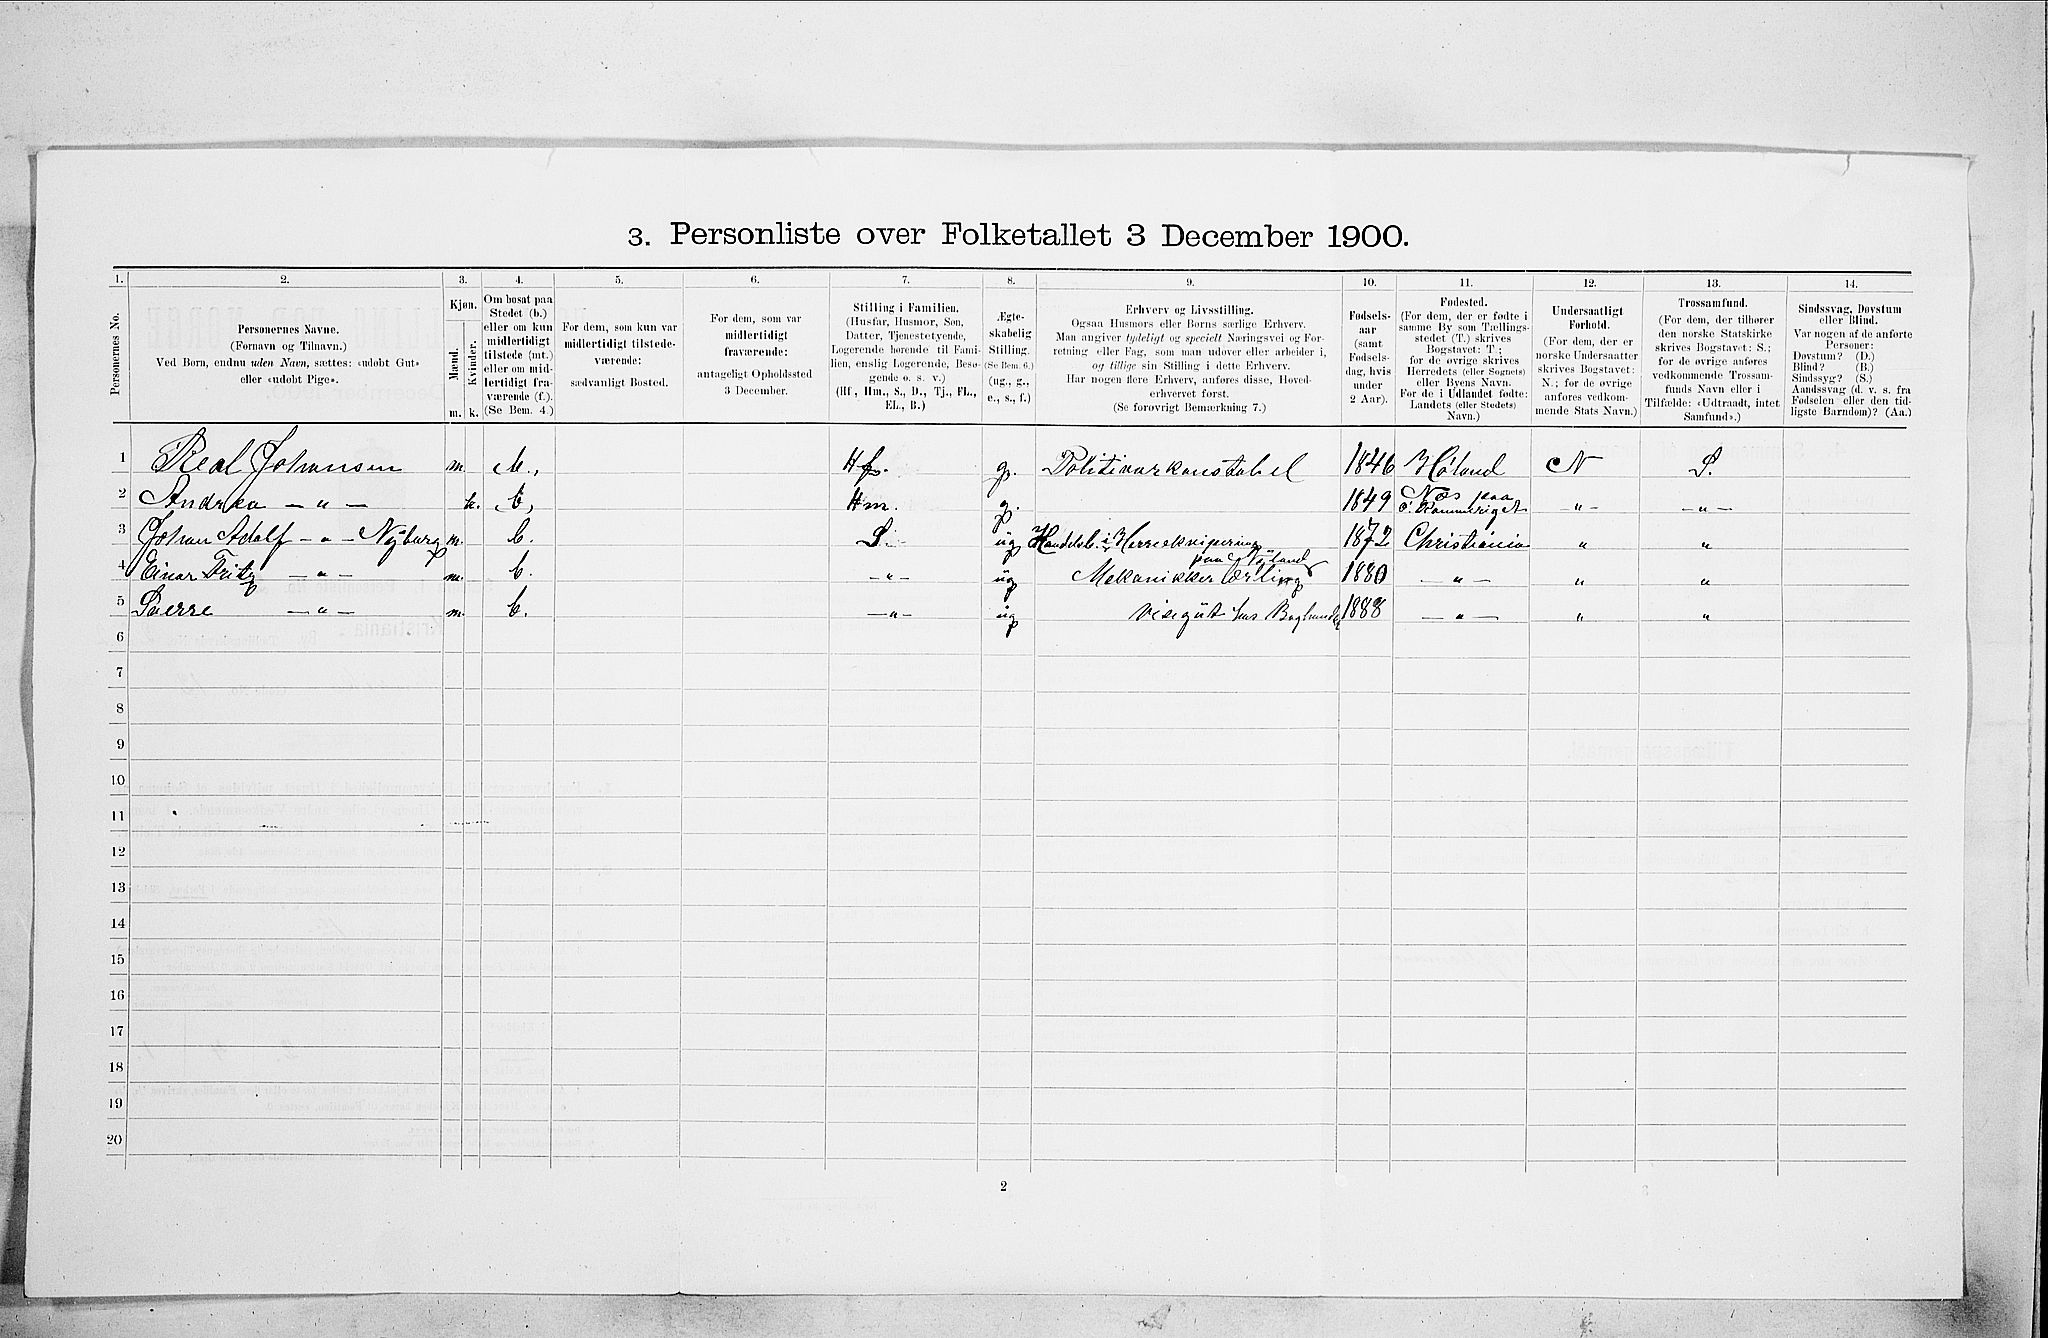 3. Personliste over Folketallet 3 December 1900.
1. 2. 3. 4. 5. 6. 7. 8. 9. 10. 11. 12. 13. 14.
Personernes No.
Personernes Navne.
(Fornavn og Tilnavn.)
Ved Børn, endnu uden Navn, sættes: «udøbt Gut»
eller «udøbt Pige».
Kjøn.
Mænd.
Kvinder.
m. k.
Om bosat paa
Stedet (b.)
eller om kun
midlertidigt
tilstede (mt.)
eller om mid-
lertidigt fra-
værende (f.).
(Se Bem. 4.)
For dem, som kun var
midlertidigt tilstede-
værende:
sædvanligt Bosted.
For dem, som var
midlertidigt
fraværende:
antageligt Opholdssted
3 December.
Stilling i Familien.
(Husfar, Husmor, Søn,
Datter, Tjenestetyende,
Logerende hørende til Fami-
lien, enslig Logerende, Besø-
gende o. s. v.)
(Hf, Hm., S., D., Tj., FL.,
EL., B.)
Ægte-
skabelig
Stilling.
(Se Bem. 6.)
(ug., g.,
e., s., f.)
Erhverv og Livsstilling.
Ogsaa Husmors eller Børns særlige Erhverv.
Man angiver tydeligt og specielt Næringsvei og For-
retning eller Fag, som man udøver eller arbeider i,
og tillige sin Stilling i dette Erhverv.
Har nogen flere Erhverv, anføres disse, Hoved-
erhvervet først.
(Se forøvrigt Bemærkning 7.)
Fødsels-
aar
(samt
Fødsels-
dag, hvis
under
2 Aar).
Fødested.
(For dem, der er fødte i
samme By som Tællings-
stedet (T.) skrives
Bogstavet: T.;
for de øvrige skrives
Herredets (eller Sognets)
eller Byens Navn.
For de i Udlandet fødte:
Landets (eller Stedets)
Navn.)
Undersaatligt
Forhold.
(For dem, der er
norske Undersaatter
skrives Bogstavet:
N.; for de øvrige
anføres vedkom-
mende Stats Navn.)
Trossamfund.
(For dem, der tilhører
den norske Statskirke
skrives Bogstavet: S.;
for de øvrige anføres
vedkommende Trossam-
funds Navn eller i
Tilfælde: «Udtraadt, intet
Samfund».)
Sindssvag, Døvstum
eller Blind.
Var nogen af de anførte
Personer:
Døvstum? (D.)
Blind? (B.)
Sindssyg? (S.)
Aandssvag (d. v. s. fra
Fødselen eller den tid-
ligste Barndom)? (Aa.)
1 Johansen m. Hf. g. 1846 Høland N S.
2 Andrea — " — k. b, Hm. g. 1849 Næs paa Rommeriget — " — — " —
3 Johan Adolf — " — Nyburg m. b. S. ug Handelsb. i Herreekvipering 1872 Christiania " "
4 Einar Fritz — " — m. b. — " — ug Mekanikker lærling paa Nyland 1880 — " — " "
5 Sverre — " — m. b. — " — ug Visegut hos Boghandl 1888 — " — " "
6
7
8
9
10
11
12
13
14
15
16
17
18
19
20
2